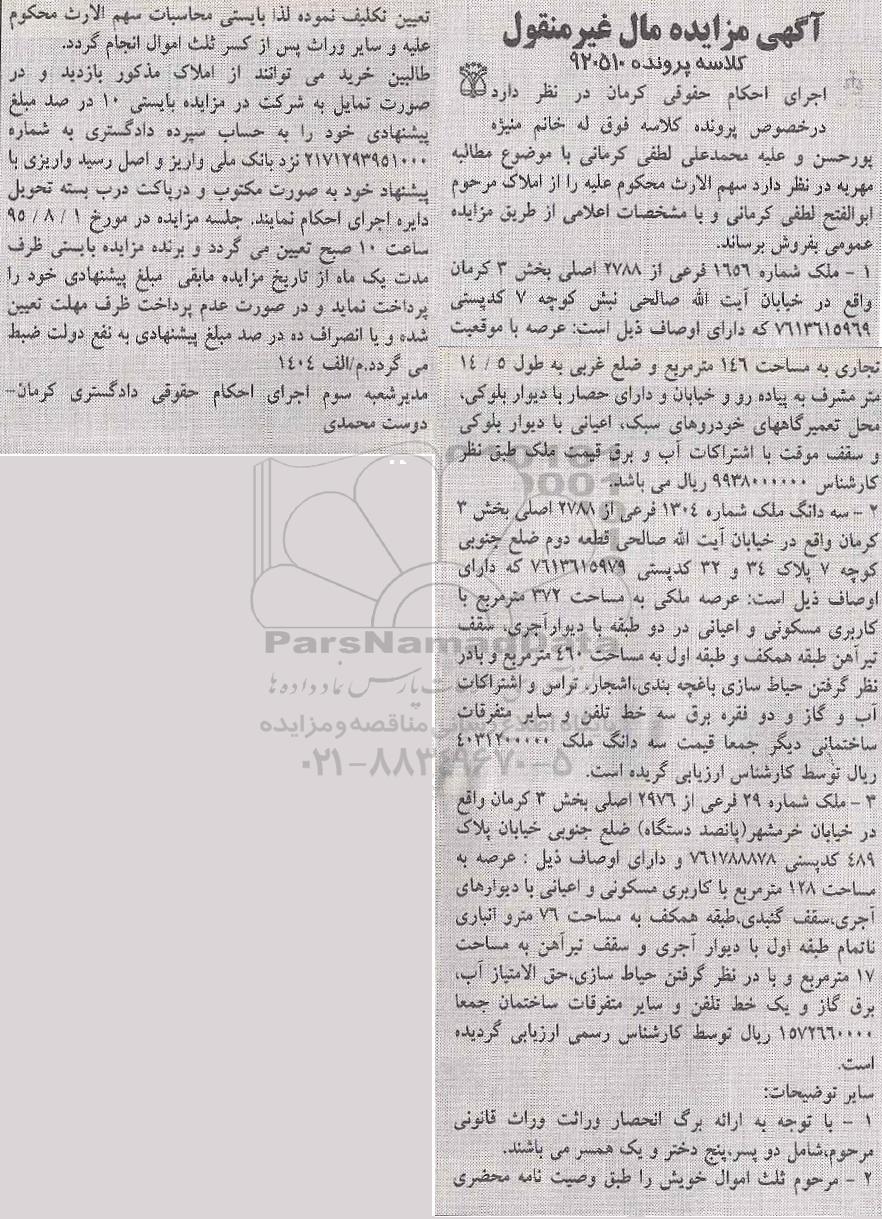 آگهی مزایده مال غیرمنقول
کلاسه پرونده ۹۲۰۵۱۰
اجرای احکام حقوقی کرمان در نظر دارد
درخصوص پرونده کلاسه فوق له خانم منیژه
پورحسن و علیه محمدعلی لطفی کرمانی با موضوع مطالبه
مهریه در نظر دارد سهم الارث محکوم علیه را از املاک مرحوم
ابوالفتح لطفی کرمانی و با مشخصات اعلامی از طریق مزایده
عمومی بفروش برساند.
۱ - ملک شماره ۱۶۵۶ فرعی از ۲۷۸۸ اصلی بخش ۳ کرمان
واقع در خیابان آیت الله صالحی نبش کوچه ۷ کدپستی
۷۶۱۳۶۱۵۹۶۹ که دارای اوصاف ذیل است: عرصه با موقعیت
تجاری به مساحت ۱۴۶ مترمربع و ضلع غربی به طول ۵ / ۱۴
متر مشرف به پیاده رو و خیابان و دارای حصار با دیوار بلوکی،
محل تعمیرگاههای خودروهای سبک، اعیانی با دیوار بلوکی
و سقف موقت با اشتراکات آب و برق قیمت ملک طبق نظر
کارشناس ۹۹۳۸۰۰۰۰۰۰ ریال می باشد.
۲ - سه دانگ ملک شماره ۱۳۰۴ فرعی از ۲۷۸۸ اصلی بخش ۳
کرمان واقع در خیابان آیت الله صالحی قطعه دوم ضلع جنوبی
کوچه ۷ پلاک ۳۴ و ۳۲ کدپستی ۷۶۱۳۶۱۵۹۷۹ که دارای
اوصاف ذیل است: عرصه ملکی به مساحت ۳۷۲ مترمربع با
کاربری مسکونی و اعیانی در دو طبقه با دیوارآجری، سقف
تیرآهن طبقه همکف و طبقه اول به مساحت ۴۶۰ مترمربع و بادر
نظر گرفتن حیاط سازی باغچه بندی،اشجار، تراس و اشتراکات
آب و گاز و دو فقره برق سه خط تلفن و سایر متفرقات
ساختمانی دیگر جمعا قیمت سه دانگ ملک ۴۰۳۱۲۰۰۰۰۰
ریال توسط کارشناس ارزیابی گریده است.
۳ - ملک شماره ۲۹ فرعی از ۲۹۷۶ اصلی بخش ۳ کرمان واقع
در خیابان خرمشهر(پانصد دستگاه) ضلع جنوبی خیابان پلاک
۴۸۹ کدپستی ۷۶۱۷۸۸۸۷۸ و دارای اوصاف ذیل : عرصه به
مساحت ۱۲۸ مترمربع با کاربری مسکونی و اعیانی با دیوارهای
آجری،سقف گنبدی،طبقه همکف به مساحت ۷۶ مترو انباری
ناتمام طبقه اول با دیوار آجری و سقف تیرآهن به مساحت
۱۷ مترمربع و با در نظر گرفتن حیاط سازی،حق الامتیاز آب،
برق گاز و یک خط تلفن و سایر متفرقات ساختمان جمعا
۱۵۷۲۶۶۰۰۰۰ ریال توسط کارشناس رسمی ارزیابی گردیده
است.
سایر توضیحات:
۱ - با توجه به ارائه برگ انحصار وراثت وراث قانونی
مرحوم،شامل دو پسر،پنج دختر و یک همسر می باشند.
۲ - مرحوم ثلث اموال خویش را طبق وصیت نامه محضری
تعیین تکلیف نموده لذا بایستی محاسبات سهم الارث محکوم
علیه و سایر وراث پس از کسر ثلث اموال انجام گردد.
طالبین خرید می توانند از املاک مذکور بازدید و در
صورت تمایل به شرکت در مزایده بایستی ۱۰ در صد مبلغ
پیشنهادی خود را به حساب سپرده دادگستری به شماره
۲۱۷۱۲۹۳۹۵۱۰۰۰ نزد بانک ملی واریز و اصل رسید واریزی با
پیشنهاد خود به صورت مکتوب و درپاکت درب بسته تحویل
دایره اجرای احکام نمایند. جلسه مزایده در مورخ ۱ / ۸ / ۹۵
ساعت ۱۰ صبح تعیین می گردد و برنده مزایده بایستی ظرف
مدت یک ماه از تاریخ مزایده مابقی مبلغ پیشنهادی خود را
پرداخت نماید و در صورت عدم پرداخت ظرف مهلت تعیین
شده و یا انصراف ده در صد مبلغ پیشنهادی به نفع دولت ضبط
می گردد.م/الف ۱۴۰۴
مدیرشعبه سوم اجرای احکام حقوقی دادگستری کرمان-
دوست محمدی
ParsNamadData
پارس نماد داده ها
پایگاه اطلاع رسانی مناقصه و مزایده
۰۲۱-۸۸۳۴۹۶۷۰-۵